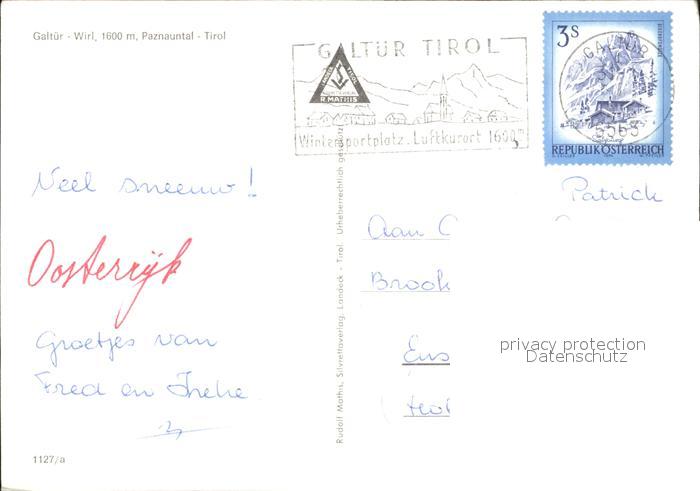 Galtür - Wirl, 1600 m, Paznauntal - Tirol
GALTÜR TIROL
R. MATHIS
Wintersportplatz. Luftkurort 1600m
3S
GALTÜR
6563
REPUBLIK ÖSTERREICH
Veel sneeuw!
Oosterrijk
Groetjes van
Fred en
1127/a
Rudolf Mathis, Silvrettaverlag, Landeck - Tirol. Urheberrechtlich geschützt
Patrick
Aan
Brook
Ens
privacy protection
Datenschutz